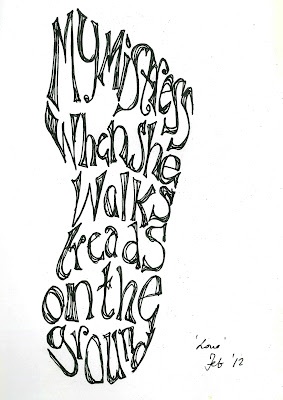 My Mistress
When she
Walks
treads
on the
ground
'Love'
Feb '12